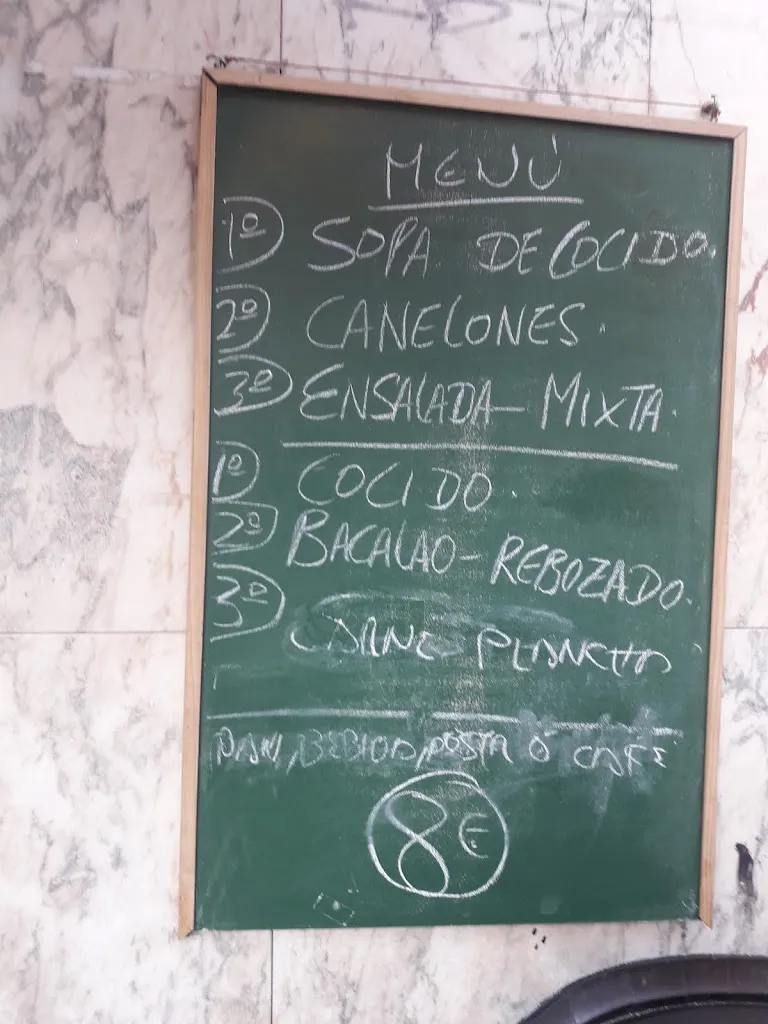 MENÚ
1º SOPA DE COCIDO.
2º CANELONES.
3º ENSALADA-MIXTA.
1º COCIDO.
2º BACALAO-REBOZADO.
3º CARNE PLANCHA
PAN, BEBIDA, POSTR O CAFE
8€